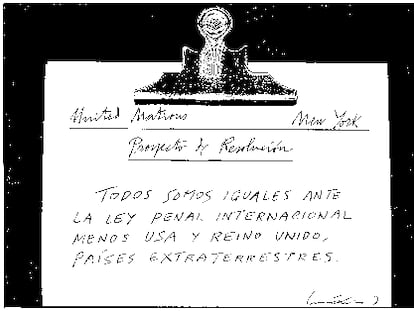 United Nations New York
Proyecto de Resolución
TODOS SOMOS IGUALES ANTE
LA LEY PENAL INTERNACIONAL
MENOS USA Y REINO UNIDO,
PAÍSES EXTRATERRESTRES.